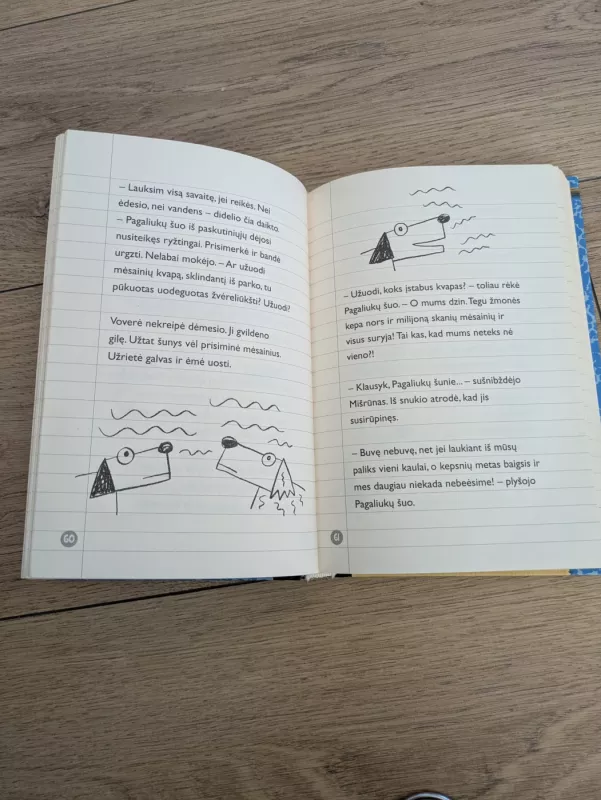 – Lauksim visą savaitę, jei reikės. Nei
ėdesio, nei vandens – didelio čia daikto.
– Pagaliukų šuo iš paskutiniųjų dėjosi
nusiteikęs ryžtingai. Prisimerkė ir bandė
urgzti. Nelabai mokėjo. – Ar užuodi
mėsainių kvapą, sklindantį iš parko, tu
pūkuotas uodeguotas žvėreliūkšti? Užuodi?
Voverė nekreipė dėmesio. Ji gvildeno
gilę. Užtat šunys vėl prisiminė mėsainius.
Užrietė galvas ir ėmė uosti.
60
– Užuodi, koks įstabus kvapas? – toliau rėkė
Pagaliukų šuo. – O mums dzin. Tegu žmonės
kepa nors ir milijoną skanių mėsainių ir
visus suryja! Tai kas, kad mums neteks nė
vieno?!
– Klausyk, Pagaliukų šunie... – sušnibždėjo
Mišrūnas. Iš snukio atrodė, kad jis
susirūpinęs.
– Buvę nebuvę, net jei laukiant iš mūsų
paliks vieni kaulai, o kepsnių metas baigsis ir
mes daugiau niekada nebeėsime! – plyšojo
Pagaliukų šuo.
61